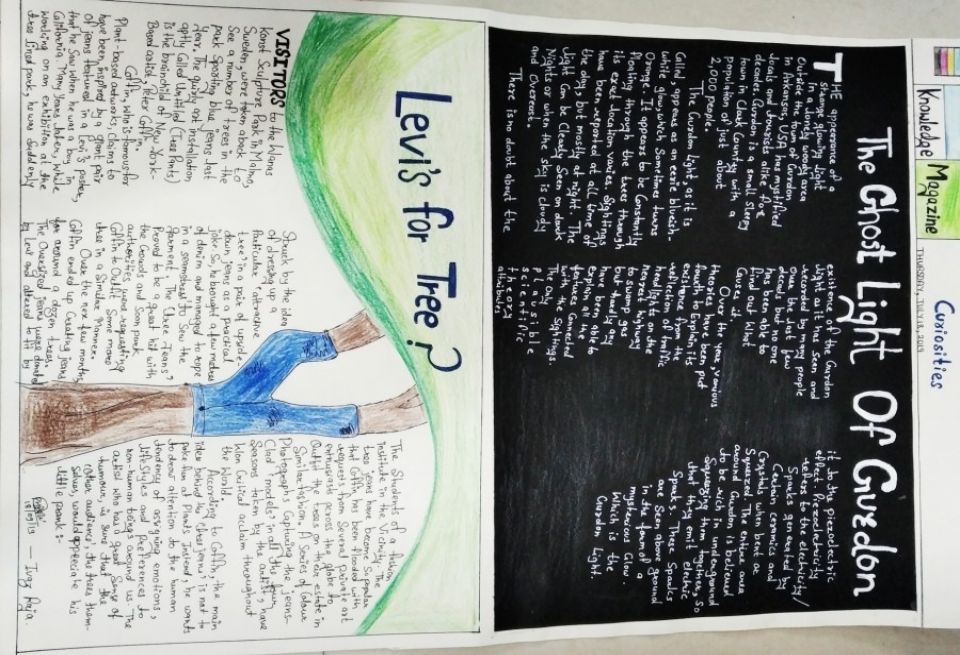 Knowledge
Magazine
Curiosities
THURSDAY, JULY 18, 2019
The Ghost Light Of Gurdon
THE appearance of a
strange glowing light
in a lonely woody area
outside the town of Gurdon
in Arkansas, USA has mystified
locals and tourists alike for
decades. Gurdon is a small sleepy
town in Clark County with a
population of just about
2,000 people.
The Gurdon Light as it is
called appears as an eerie bluish-
white glow which sometimes turns
Orange. It appears to be Constantly
floating through the trees though
its exact location varies. Sightings
have been reported at all time of
the day but mostly at night. The
Light Can be Clearly Seen on dark
Nights or when the sky is cloudy
and Overcast.
There is no doubt about the
existence of the Gurdon
Light as it has seen and
recorded by many people
over the last few
decads but no one
has been able to
find out what
Causes it.
Over the year various
theories have been put
forth to Explain its
existence from the
reflection of traffic
headlights on the
nearest highway
to swamp gas
but hardly any
has been able to
explain all the
features connected
with the Sightings.
The only
plausible
scientific
theory
attributes
it to the piezoelectric
effect. Piezoelectricity
refers to the electricity/
Sparks generated by
Certain ceramics and
Crystals when bent or
Squeezed. The entire area
around Gurdon is believed
to be rich in underground
Squeezing them together, so
that they emit electric
Sparks. These Sparks
are Seen above ground
in the form of a
mysterious Glow
Which is the
Gurdon Light.
Levi's for Tree?
VISITORS to the Wanas
Konst Sculpture Park in Malmo,
Sweden, were taken aback to
See a number of trees in the
park Sporting blue jeans last
year. The quirky art installation
aptly Called Untitled (Tree Pants)
is the brainchild of New York-
Based artist, Peter Coffin.
Coffin, who is famous for
Plant-based artworks, claims to
have been inspired by a giant pair
of jeans featured in a Levi's poster,
that he saw when he was a boy in
California. Many years later, while
working on an exhibition at the
tree lined park, he was suddenly
Struck by the idea
of dressing up a
Particular 'attractive
tree' in a pair of upside
down jeans as a practical
joke. So he brought a few metres
of denim and managed to rope
in a seamstress to Sew the
garment. The 'tree jeans'
Proved to be a great hit with
the Crowds and Soon park
authorities were requesting
Coffin to Outfit Some more
trees in a Similar manner.
Over the next few months
Coffin ended up Creating jeans
for around a dozen trees.
The Oversized jeans were donated
by Levi's and altered to fit by
The Students of a fashion
institute in the Vicinity. The
tree jeans have become So popular
that Coffin has been flooded with
requests from Several private art
enthusiasts across the globe to
Outfit the trees on their estate in
Similar fashion. A Series of Colour
Photographs Capturing the jeans-
Clad 'models in all the four
Seasons taken by the artist, have
Won Critical acclaim throughout
the World.
According to Coffin, the main
idea behind his creations is not to
poke fun at Plants instead, he wants
to draw attention to the human
tendency of assigning emotions,
lifestyles and Preferences to
non-human beings around us. The
artist who has a great Sense of
humour, is Sure that the
other audience, the trees them-
selves, would appreciate his
little prank!
18/07/19